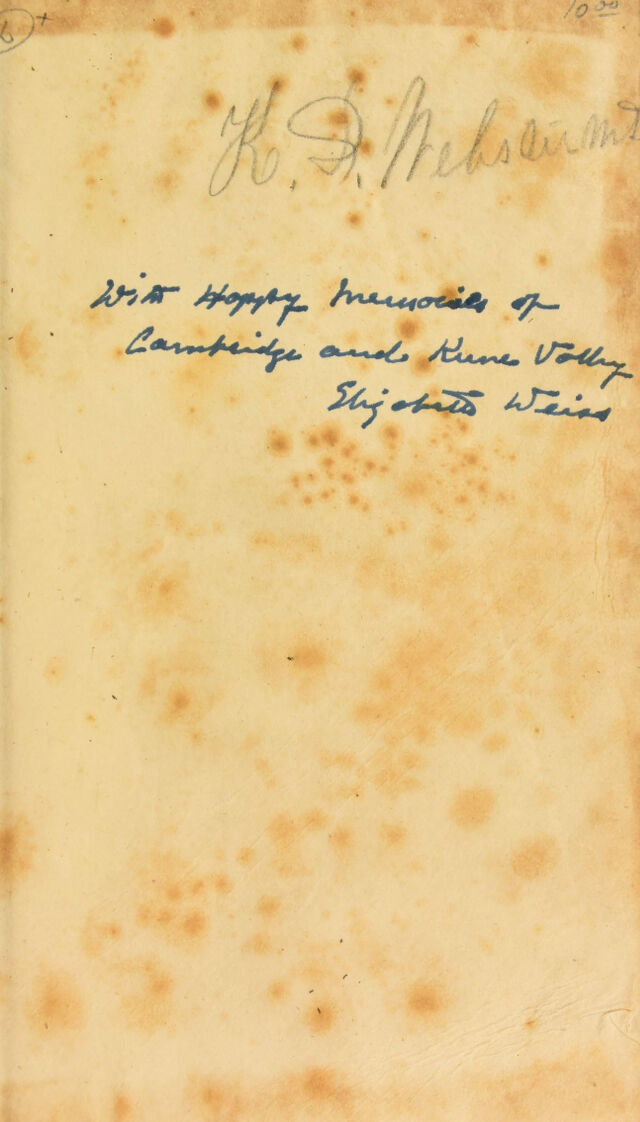 6 x
10.00
K. D. Webster MD
With Happy Memories of
Cambridge and Keene Valley
Elizabeth Weiss